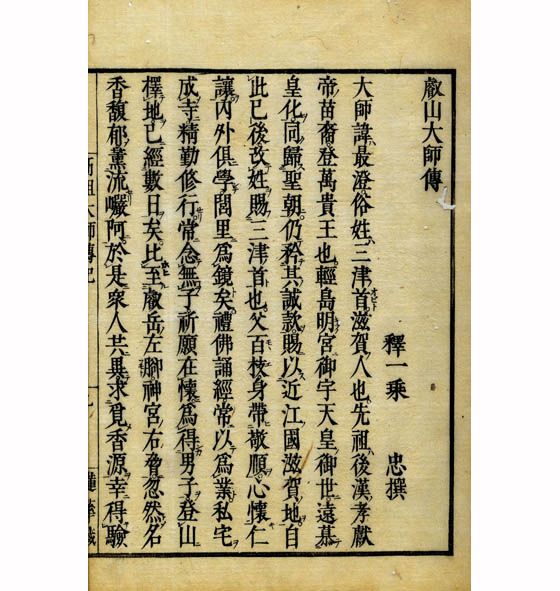 叡山大師傳
釋一乘 忠撰
大師諱最澄俗姓三津首滋賀人也先祖後漢孝獻
帝苗裔登萬貴王也輕島明宮御宇天皇御世遠慕
皇化同歸聖朝仍矜其誠款賜以近江國滋賀地自
此已後改姓賜三津首也父百枝身帶敬順心懷仁
讓內外俱學閭里爲鏡矣禮佛誦經常以爲業私宅
成寺精勤修行常念無子祈願在懷爲得男子登山
擇地已經數日矣比至叡岳左脚神宮右脅忽然名
香馥郁薰流巗阿於是衆人共異求覓香源幸得驗
祖大師傳